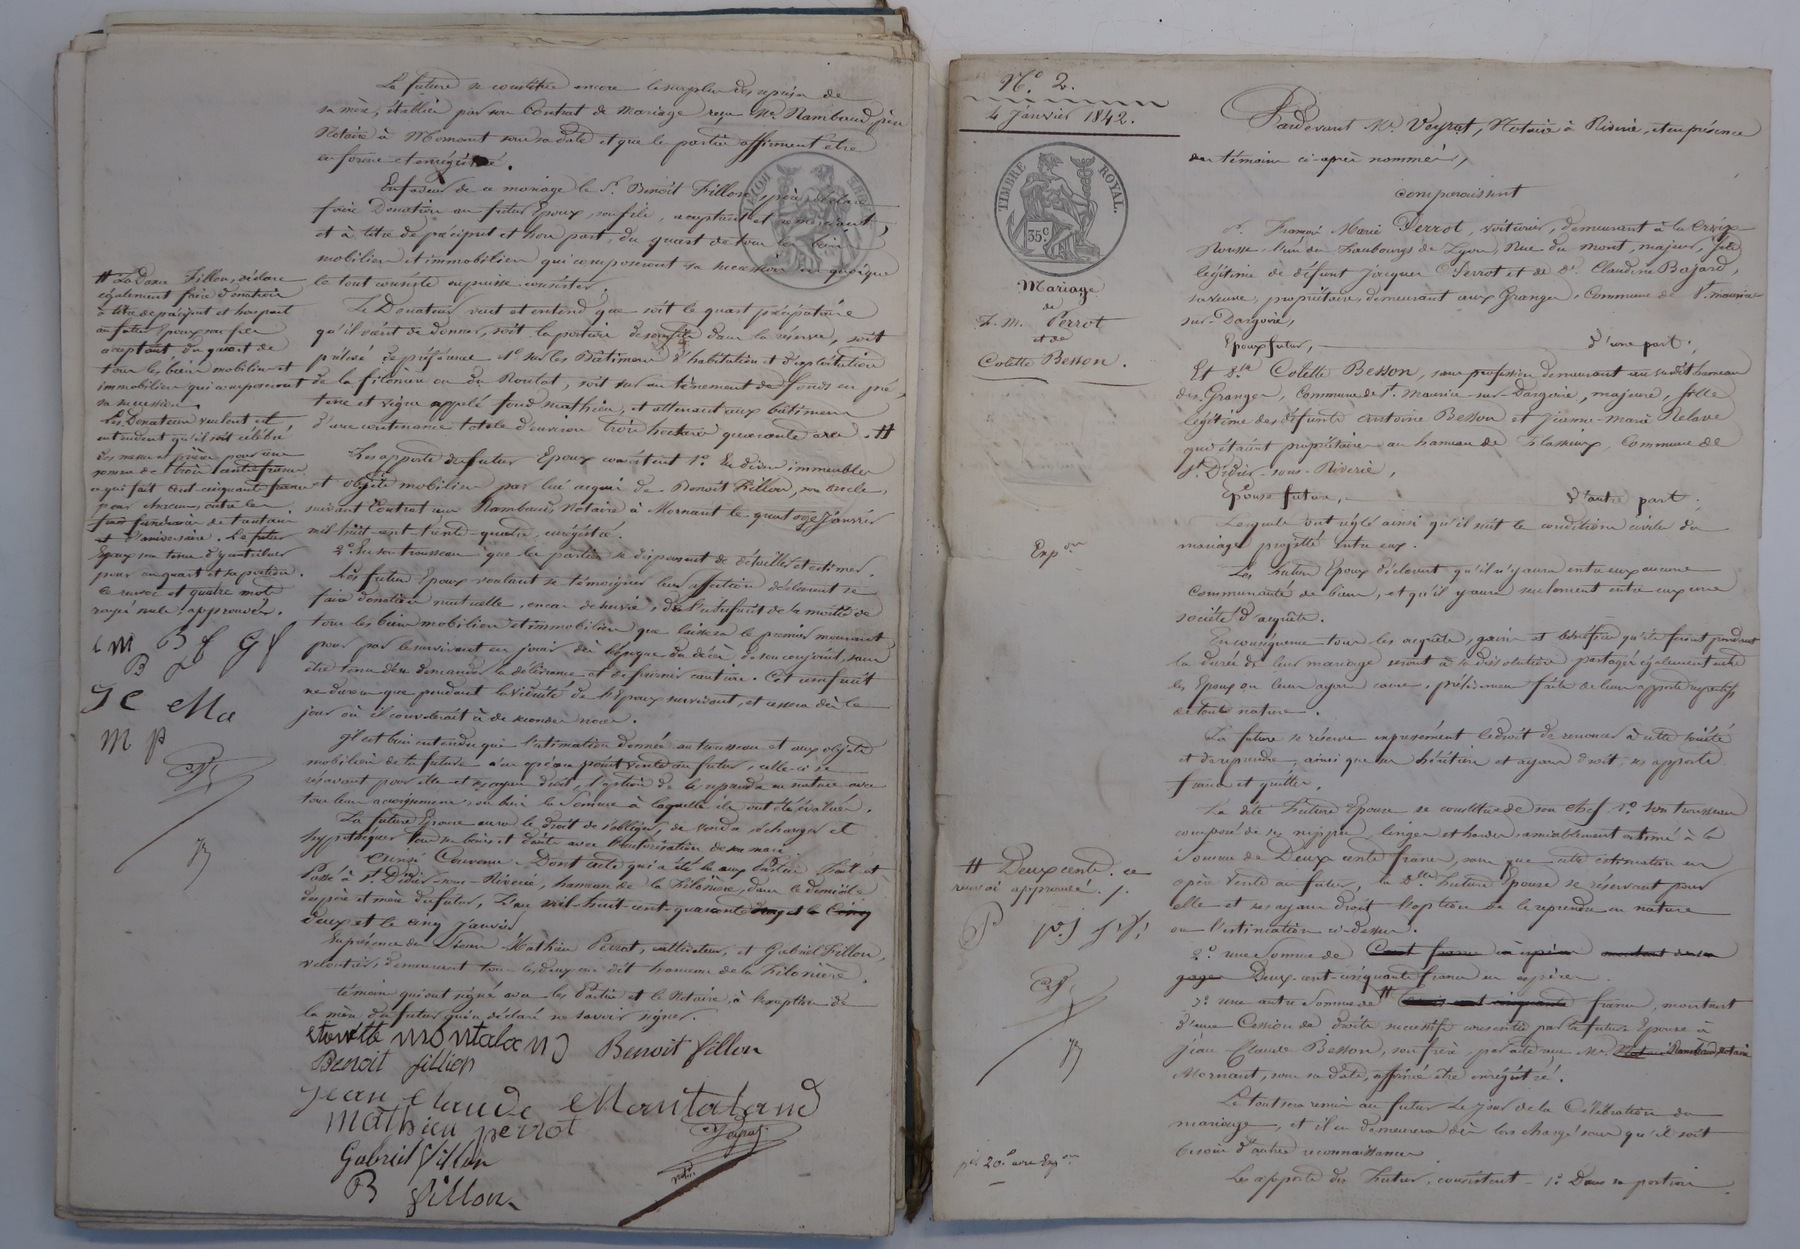 La future se constitue encore le surplus des reprises de
sa mère, établies par son Contrat de Mariage reçu Me. Rambaud, père
Notaire à Mornant sous sa date et que les parties affirment être
en forme et enrégistré.
En faveur de ce mariage le Sr. Benoit Fillon, père, déclare
faire Donation au futur Epoux, son fils, acceptant et remerciant,
et à titre de préciput et hors part, du quart de tous les biens
mobiliers et immobiliers qui composeront sa succession en quoique
le tout consiste ou puisse consister.
Le Donateur veut et entend que soit le quart préciputaire
qu'il vient de donner, soit la portion de son fils dans la réserve, soit
prélevé de préférence 1o sur les Bâtimens d'habitation et d'exploitation
de la filonière ou du Roulat, soit sur un tènement de fonds en pré,
terre et vigne appelé fond mathieu, et attenant aux bâtimens
d'une contenance totale d'environ trois hectares quarante ares. #
Les apports du futur Epoux consistent 1o. En divers immeubles
et objets mobiliers par lui acquis de Benoit Fillon, son oncle,
suivant Contrat reçu Rambaud Notaire à Mornant le quatorze Janvier
mil huit cent trente-quatre, enrégistré.
2o. En son trousseau que les parties se dispensent de détailler et estimer.
Les futurs Epoux voulant se témoigner leur affection déclarent se
faire donation mutuelle, en cas de survie, de l'usufruit de la moitié de
tous les biens mobiliers et immobiliers que laissera le premier mourant
pour par le survivant en jouir dès l'époque du décès de son conjoint, sans
être tenu d'en demander la délivrance et de fournir caution. Cet usufruit
ne durera que pendant la viduité de l'Epoux survivant, et cessera dès le
jour où il convolerait à de secondes noces.
Il est bien entendu que l'estimation donnée au trousseau et aux objets
mobiliers de la future n'en opérera point vente au futur, celle-ci se
réservant pour elle et ses ayans droit, l'option de les reprendre en nature avec
tous leurs accroissemens, ou bien la Somme à laquelle ils ont été évalués.
La future Epouse aura le droit de s'obliger, de vendre, échanger et
hypothéquer tous ses biens et droits avec l'autorisation de son mari.
Ainsi Convenu. Dont acte qui a été lu aux Parties. Fait et
Passé à St. Didier-sous-Riverie, hameau de la Filonière, dans le domicile
des père et mère du futur, L'an mil-huit-cent-quarante
deux et le cinq janvier
En présence des Sieurs Mathieu Perrot, cultivateur, et Gabriel Fillon,
veloutier, demeurant tous les deux au dit hameau de la Filonière,
témoins qui ont signé avec les Parties et le Notaire, à l'exception de
la mère du futur qui a déclaré ne savoir signer.
montaland Benoit fillon
Benoit fillion
Jean Claude Montaland
mathieu perrot
Veyrat
Gabriel fillon
notre.
B fillon
# La Dame Fillon, déclare
également faire donation
à titre de préciput et hors part
au futur Epoux son fils
acceptant du quart de
tous les biens mobiliers et
immobiliers qui composeront
sa succession.
Les Donateurs veulent et
entendent qu'il soit célébré
des messes et prières pour une
somme de trois cents francs
ce qui fait cent cinquante francs
pour chacun, outre les
frais funéraires de trentain
et d'anniversaire. Le futur
Epoux sera tenu d'y contribuer
pour un quart et sa portion.
Ce renvoi et quatre mots
rayés nuls approuvés.
c m B f G f
B F
J C Ma
m p
No. 2.
4 Janvier 1842.
TIMBRE ROYAL.
35 c
Mariage
de
F. M. Perrot
et de
Colette Besson.
Expon
# Deux cents. ce
renvoi approuvé.
P
Pardevant Me. Veyrat, Notaire à Riverie, et en présence
des témoins ci-après nommés,
comparaissent
Sr. François Marie Perrot, voiturier, demeurant à la Croix-
Rousse, l'un des Faubourgs de Lyon, Rue du mont, majeur, fils
légitime de défunt Jacques Perrot et de De. Claudine Bajard,
sa veuve, propriétaire, demeurant aux Granges, Commune de St. maurice
sur-Dargoire,
Epoux futur, d'une part;
Et Dlle Colette Besson, sans profession demeurant au susdit hameau
des Granges, Commune de St. Maurice-sur-Dargoire, majeure, fille
légitime des défunts Antoine Besson et Jeanne-marie Delave
qui étaient propriétaires au hameau de Flassieux, Commune de
St. Didier-sous-Riverie,
Epouse future, d'autre part;
Lesquels ont réglé ainsi qu'il suit les conditions civiles du
mariage projetté entre eux.
Les Futurs Epoux déclarent qu'il n'y aura entre eux aucune
Communauté de biens, et qu'il y aura seulement entre eux une
société d'acquêts.
En conséquence tous les acquêts, gains et bénéfices qu'ils feront pendant
la durée de leur mariage seront à sa dissolution partagés également entre
les Epoux ou leurs ayans cause, prélèvement fait de leurs apports respectifs
de toute nature.
La future se réserve expressément le droit de renoncer à cette société
et de reprendre, ainsi que ses héritiers et ayans droit, ses apports
francs et quittes.
La dite Future Epouse se constitue de son Chef 1o. Son trousseau
composé de ses nippes, linges et hardes, amiablement estimé à la
somme de Deux cents francs, sans que cette estimation en
opère Vente au futur, la Dlle. Future Epouse se réservant pour
elle et ses ayans droit l'option de le reprendre en nature
ou l'estimation ci-dessus.
2o. une Somme de Cent francs en espèces montant de ses
gages Deux-cent-cinquante francs en espèces.
3o. une autre Somme de # francs, montant
d'une Cession de droits successifs consentie par la future Epouse à
Jean Claude Besson, son frère, par acte reçu Me. Rambaud, notaire
Mornant, sous sa date, affirmé être enrégistré.
Le tout sera remis au futur le jour de la Célébration du
mariage, et il en demeurera dès lors chargé sans qu'il soit
besoin d'autre reconnaissance.
Les apports du Futur, consistent - 1o. Dans sa portion